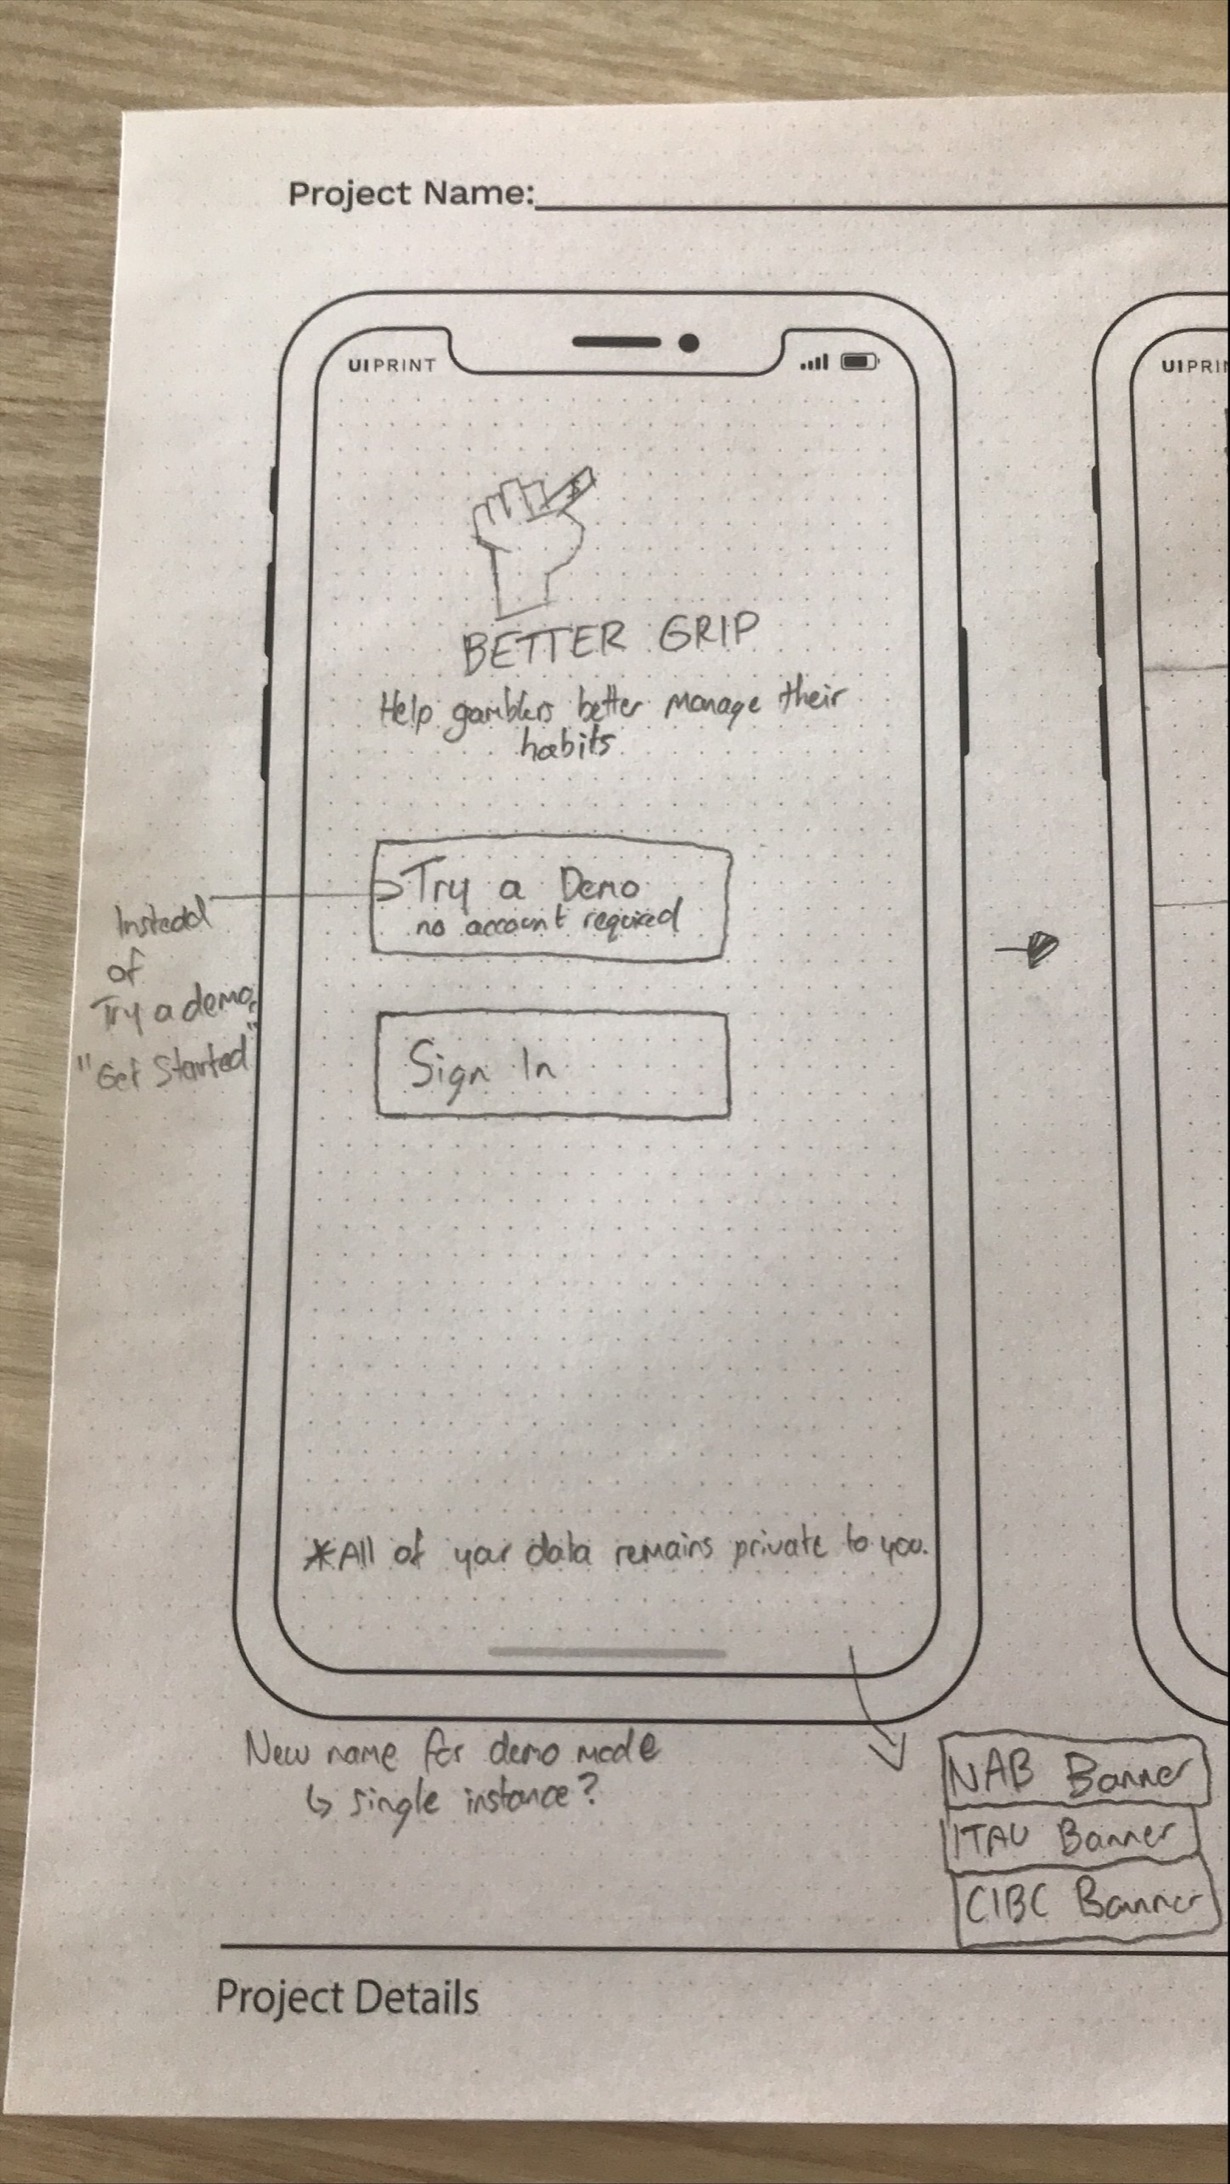 Project Name:
UI PRINT
UI PRI
BETTER GRIP
Help gamblers better manage their
habits
Try a Demo
no account required
Instead
of
Try a demo,
"Get Started"
Sign In
*All of your data remains private to you.
New name for demo mode
↳ single instance?
NAB Banner
ITAU Banner
CIBC Banner
Project Details